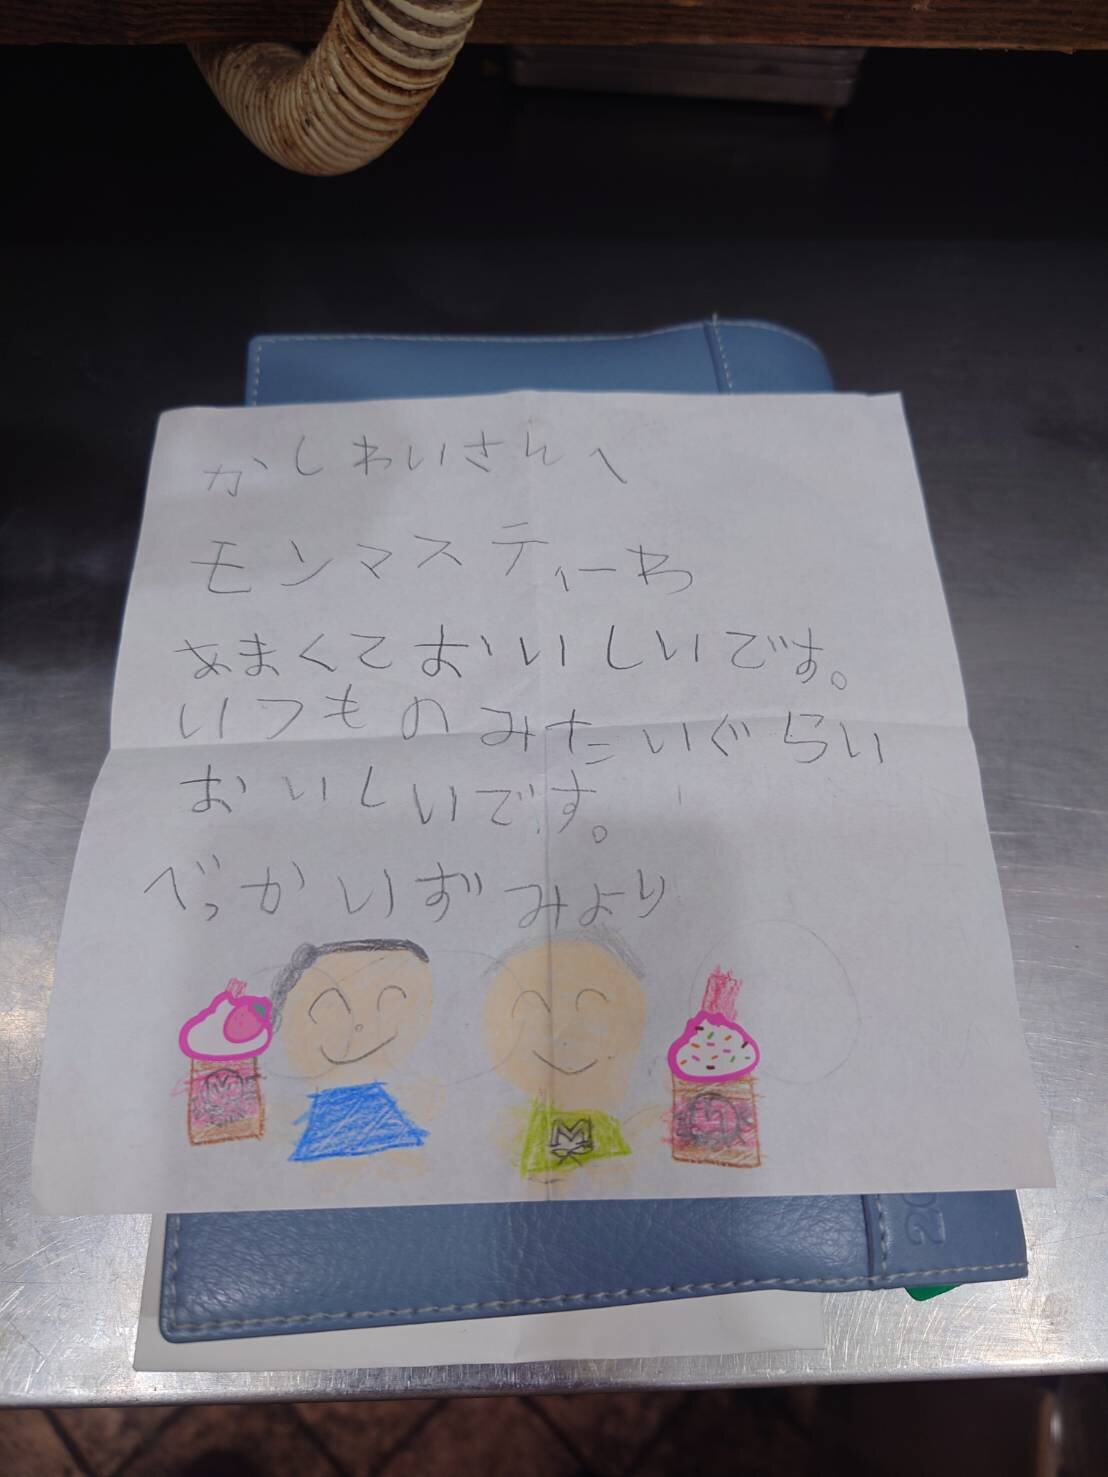 かしわいさんへ
モンマスティーわ
あまくておいしいです。
いつものみたいぐらい
おいしいです。
べっかいずみより
M
M
M
20